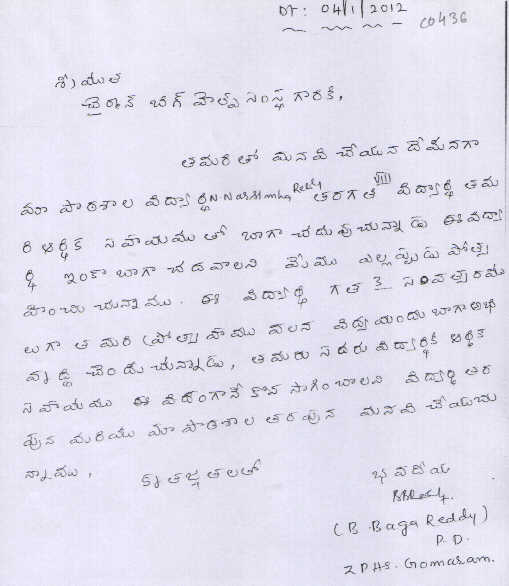 Dt: 04/1/2012
C0436
శ్రీయుత
చైర్మన్ బిగ్ హెల్ప్ సంస్థ గారికి,
తమరితో మనవి చేయున దేమనగా
మా పాఠశాల విద్యార్థి N. Narsimha Reddy VIII తరగతి విద్యార్థి తమ
రి ఆర్థిక సహాయము తో బాగా చదువుచున్నాడు ఈ విద్యా
ర్థి ఇంకా బాగా చదవాలని మేము ఎల్లప్పుడు ప్రోత్స
హించు చున్నాము. ఈ విద్యార్థి గత 3 సంవత్సరము
లుగా తమరి ప్రోత్సాహము వలన విద్య యందు బాగా అభి
వృద్ధి చెందుచున్నాడు, తమరు సదరు విద్యార్థికి ఆర్థిక
సహాయము ఈ విధంగానే కొన సాగించాలని విద్యార్థి తర
పున మరియు మా పాఠశాల తరపున మనవి చేయుచు
న్నాము,
కృతజ్ఞతలతో
భవదీయ
BBReddy.
(B. Baga Reddy)
P.D.
ZPHS. Gomaram.